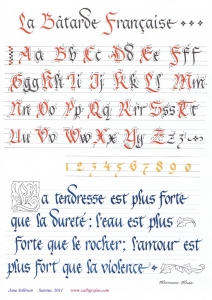 La Bâtarde Française
Aa Bb Cc Dd Ee Fff
Ggg Hh Ii Jj Kk Ll Mm
Nn Oo Pp Qq Rr Sss Tt
Uu Vv Ww Xx Yy Zz
1 2 3 4 5 6 7 8 9 0
La tendresse est plus forte
que la dureté; l'eau est plus
forte que le rocher; l'amour est
plus fort que la violence
Hermann Hesse
Jane Sullivan Saintes, 2011 www.calligrafee.com